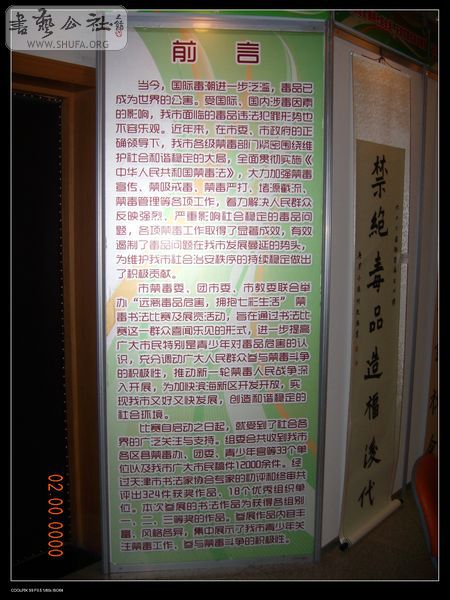 書藝公社
WWW.SHUFA.ORG
前 言
当今，国际毒潮进一步泛滥，毒品已
成为世界的公害。受国际、国内涉毒因素
的影响，我市面临的毒品违法犯罪形势也
不容乐观。近年来，在市委、市政府的正
确领导下，我市各级禁毒部门紧密围绕维
护社会和谐稳定的大局，全面贯彻实施《
中华人民共和国禁毒法》，大力加强禁毒
宣传、禁吸戒毒、禁毒严打、堵源截流、
禁毒管理等各项工作，着力解决人民群众
反映强烈、严重影响社会稳定的毒品问
题，各项禁毒工作取得了显著成效，有效
遏制了毒品问题在我市发展蔓延的势头，
为维护我市社会治安秩序的持续稳定做出
了积极贡献。
市禁毒委、团市委、市教委联合举
办“远离毒品危害，拥抱七彩生活”禁
毒书法比赛及展览活动，旨在通过书法比
赛这一群众喜闻乐见的形式，进一步提高
广大市民特别是青少年对毒品危害的认
识，充分调动广大人民群众参与禁毒斗争
的积极性，推动新一轮禁毒人民战争深
入开展，为加快滨海新区开发开放，实
现我市又好又快发展，创造和谐稳定的
社会环境。
比赛自启动之日起，就受到了社会各
界的广泛关注与支持。组委会共收到我市
各区县禁毒办、团委、青少年宫等33个单
位以及我市广大市民稿件12000余件。经
过天津市书法家协会专家的初评和终审共
评出324件获奖作品、18个优秀组织单
位。本次参展的书法作品为获得各组别
一、二、三等奖的作品。参展作品内容丰
富、风格各异，集中展示了我市青少年关
注禁毒工作、参与禁毒斗争的积极性。
禁絶毒品造福後代
02.00.0000